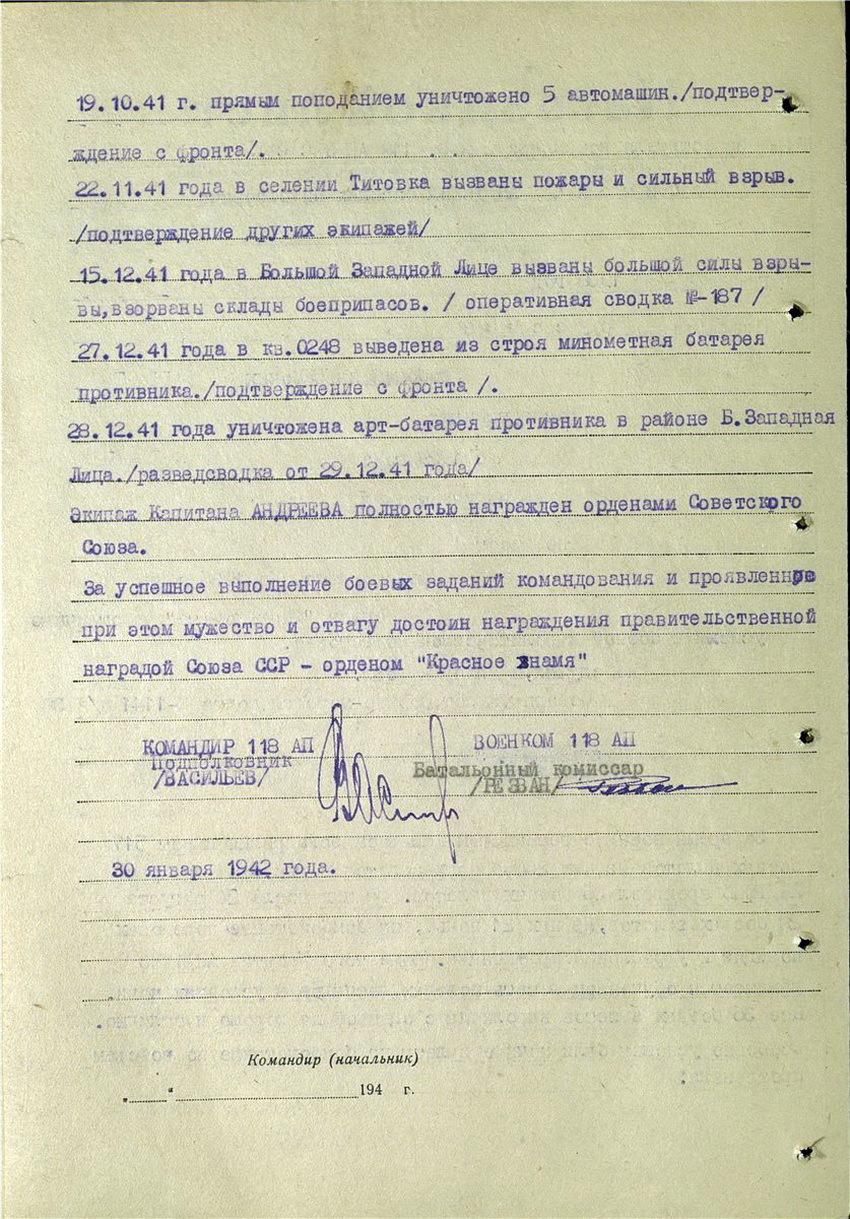 19.10.41 г. прямым поподанием уничтожено 5 автомашин./подтвер-
ждение с фронта/.
22.11.41 года в селении Титовка вызваны пожары и сильный взрыв.
/подтверждение других экипажей/
15.12.41 года в Большой Западной Лице вызваны большой силы взры-
вы,взорваны склады боеприпасов. / оперативная сводка №-187 /
27.12.41 года в кв.0248 выведена из строя минометная батарея
противника./подтверждение с фронта /.
28.12.41 года уничтожена арт-батарея противника в районе Б.Западная
Лица./разведсводка от 29.12.41 года/
Экипаж Капитана АНДРЕЕВА полностью награжден орденами Советского
Союза.
За успешное выполнение боевых заданий командования и проявленное
при этом мужество и отвагу достоин награждения правительственной
наградой Союза ССР - орденом "Красное знамя"
КОМАНДИР 118 АП ВОЕНКОМ 118 АП
Подполковник Батальонный комиссар
/ВАСИЛЬЕВ/ /РЕЗВАН/
30 января 1942 года.
Командир (начальник)
„ “ 194 г.